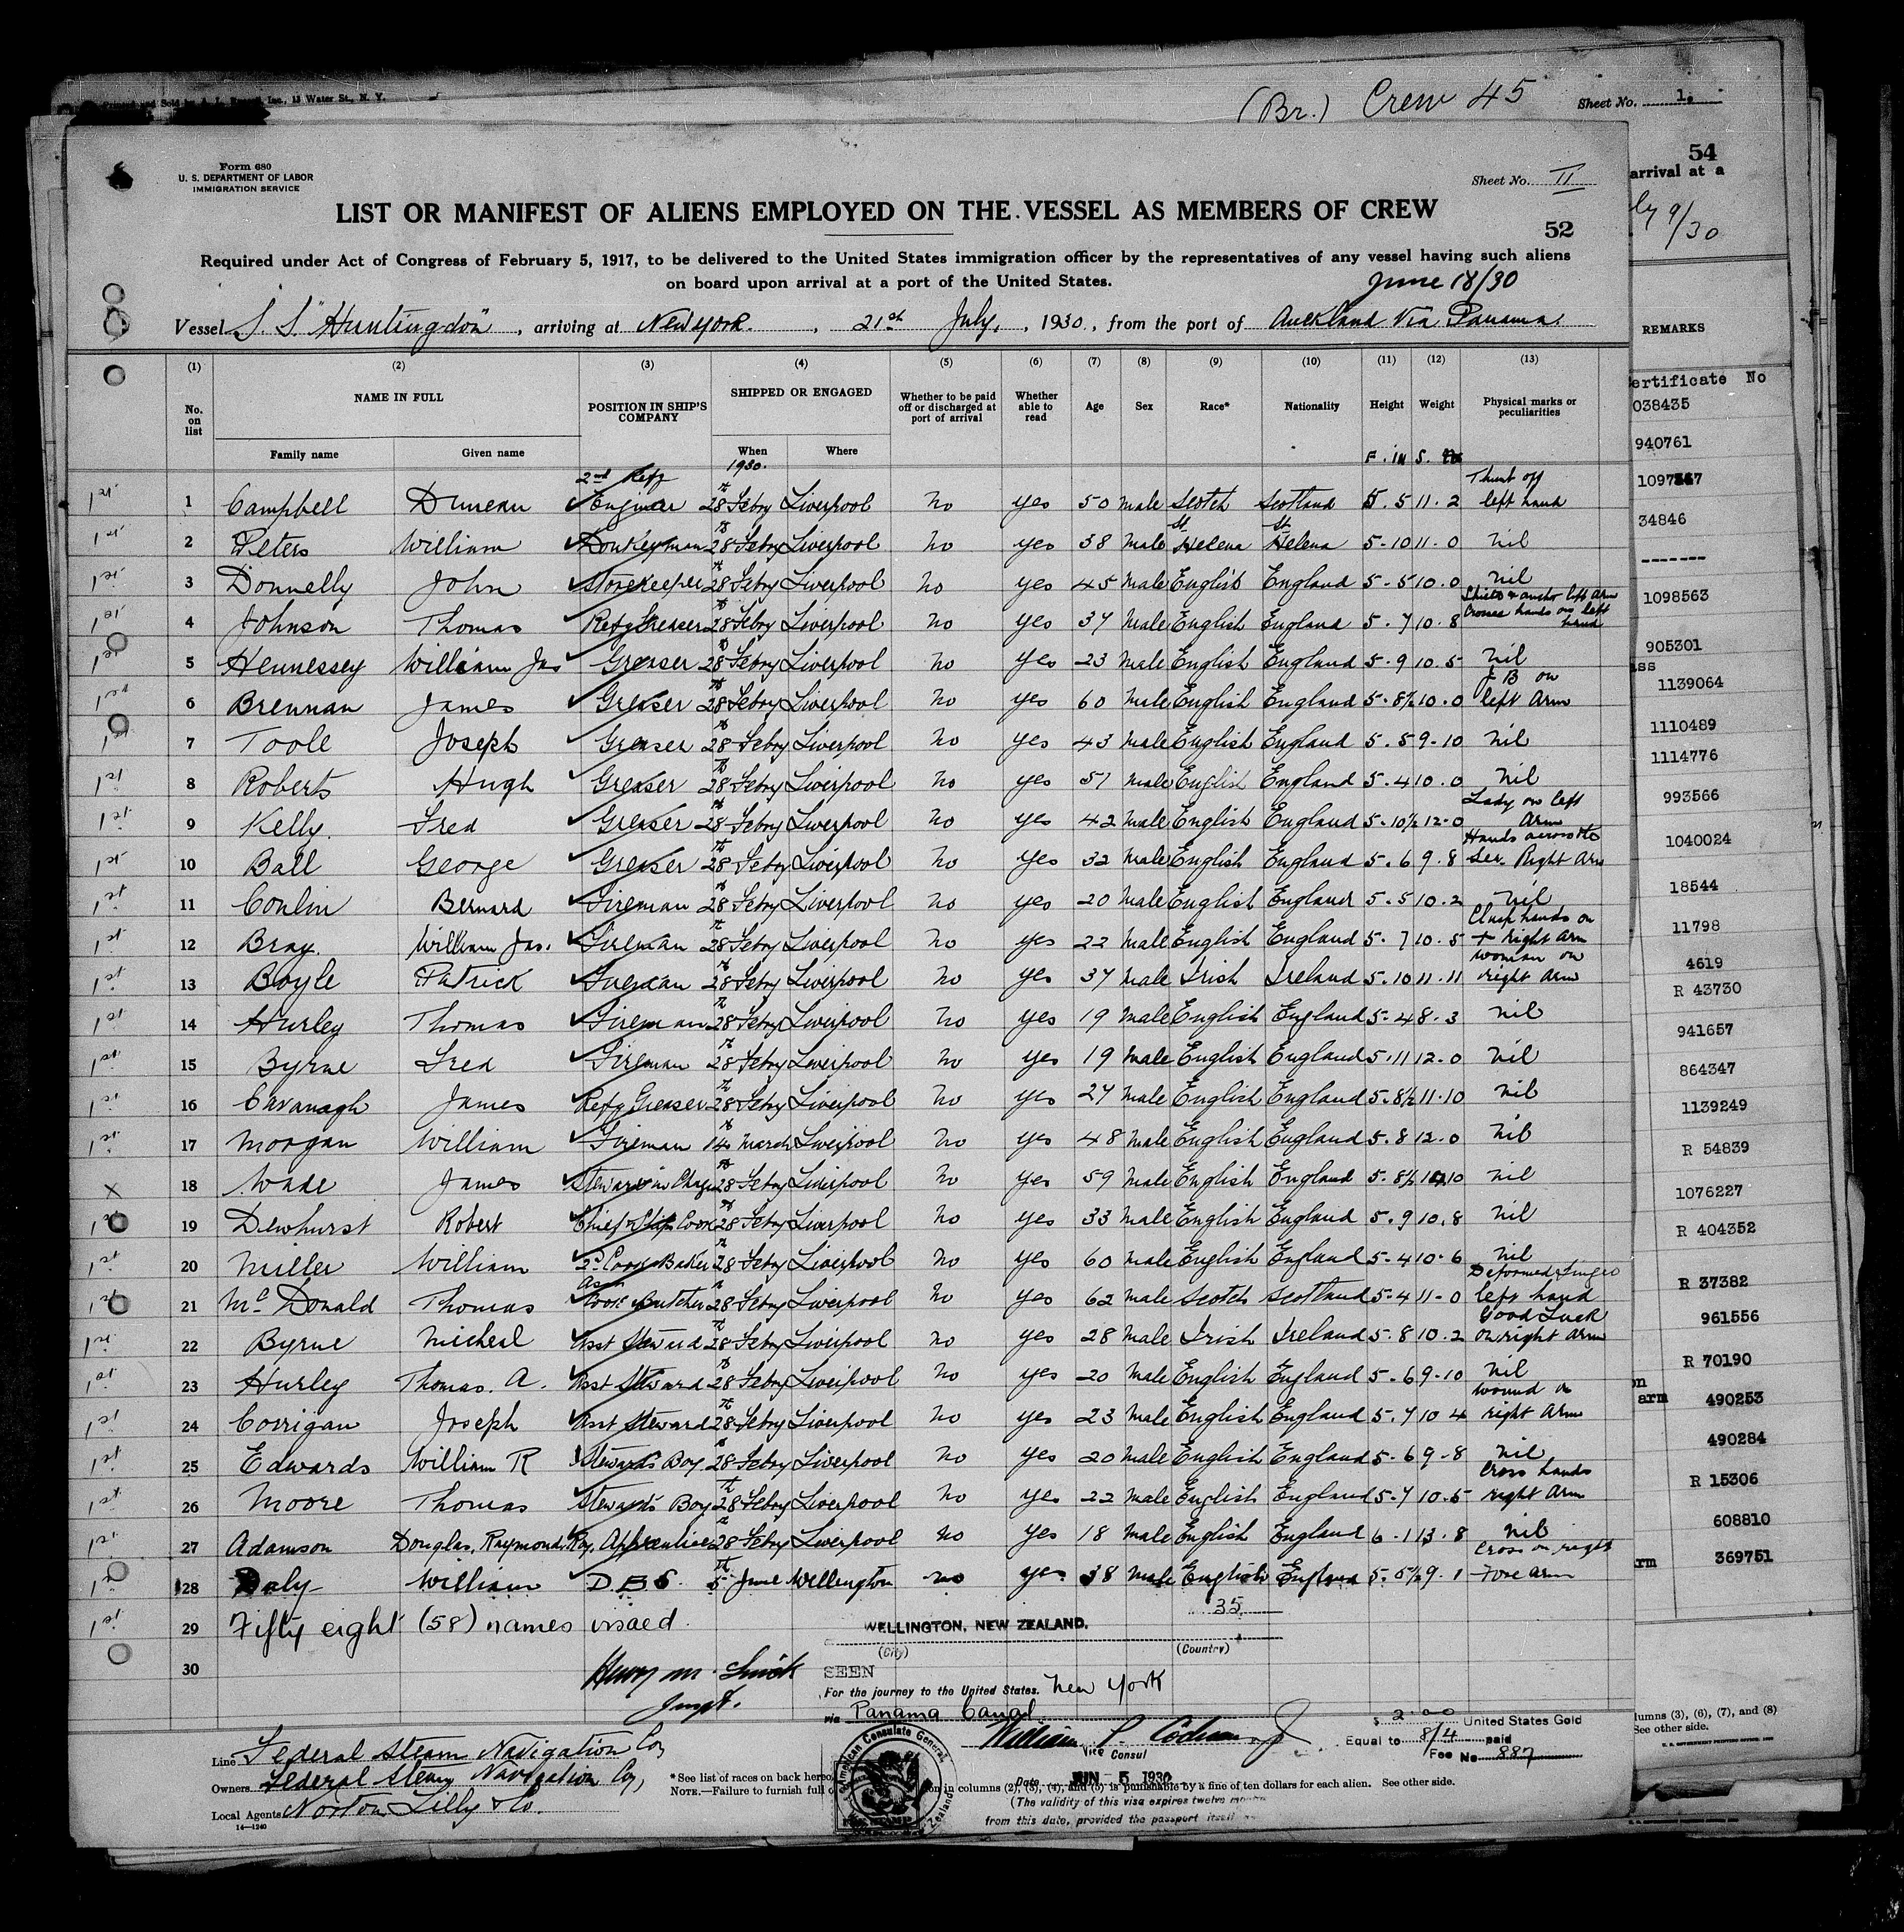 Printed and Sold by A. L. Inc., 13 Water St., N. Y.
(Br.) Crew 45
Sheet No. 1.
54
arrival at a
ly 9/30
REMARKS
Form 680
U. S. DEPARTMENT OF LABOR
IMMIGRATION SERVICE
Sheet No. II
LIST OR MANIFEST OF ALIENS EMPLOYED ON THE VESSEL AS MEMBERS OF CREW
52
Required under Act of Congress of February 5, 1917, to be delivered to the United States immigration officer by the representatives of any vessel having such aliens
on board upon arrival at a port of the United States.
June 18/30
Vessel S. S. "Huntingdon", arriving at New York. , 21st July, , 1930, from the port of Auckland Via Panama.
(1) (2) (3) (4) (5) (6) (7) (8) (9) (10) (11) (12) (13)
No. on list NAME IN FULL POSITION IN SHIP'S COMPANY SHIPPED OR ENGAGED Whether to be paid off or discharged at port of arrival Whether able to read Age Sex Race* Nationality Height Weight Physical marks or peculiarities
Family name Given name When Where
1930. F. in S.
1st 1 Campbell Duncan 2nd Refg Engineer 28th Febry Liverpool No yes 50 male Scotch Scotland 5.5 11.2 Thumb off left hand
1st 2 Peters William Donkeyman 28th Febry Liverpool No yes 38 male St Helena St Helena 5-10 11-0 nil
1st 3 Donnelly John Storekeeper 28th Febry Liverpool No yes 45 male English England 5-5 10.0 nil
1st 4 Johnson Thomas Refg Greaser 28th Febry Liverpool No yes 37 male English England 5.7 10.8 anchor left arm hands on left hand
1st 5 Hennessey William Jas Greaser 28th Febry Liverpool No yes 23 male English England 5.9 10.5 nil
1st 6 Brennan James Greaser 28th Febry Liverpool No yes 60 male English England 5-8½ 10.0 J B on left arm
1st 7 Toole Joseph Greaser 28th Febry Liverpool No yes 43 male English England 5.5 9-10 nil
1st 8 Roberts Hugh Greaser 28th Febry Liverpool No yes 57 male English England 5.4 10.0 nil
1st 9 Kelly Fred Greaser 28th Febry Liverpool No yes 42 male English England 5-10½ 12-0 Lady on left arm
1st 10 Ball George Greaser 28th Febry Liverpool No yes 32 male English England 5.6 9.8 Hands across the sea Right arm
1st 11 Conlin Bernard Fireman 28th Febry Liverpool No yes 20 male English England 5.5 10.2 nil
1st 12 Bray William Jas. Fireman 28th Febry Liverpool No yes 22 male English England 5.7 10.5 Clasp hands on + right arm
1st 13 Boyle Patrick Fireman 28th Febry Liverpool No yes 37 male Irish Ireland 5.10 11.11 woman on right arm
1st 14 Hurley Thomas Fireman 28th Febry Liverpool No yes 19 male English England 5-4 8.3 nil
1st 15 Byrne Fred Fireman 28th Febry Liverpool No yes 19 male English England 5.11 12.0 nil
1st 16 Cavanagh James Refg Greaser 28th Febry Liverpool No yes 27 male English England 5.8½ 11.10 nil
1st 17 Morgan William Fireman 14th March Liverpool No yes 48 male English England 5.8 12.0 nil
x 18 Wade James Steward in Charge 28th Febry Liverpool No yes 59 male English England 5.8½ nil
1st 19 Dewhurst Robert Chief Ships Cook 28th Febry Liverpool No yes 33 male English England 5.9 10.8 nil
1st 20 Miller William 2d Cook & Baker 28th Febry Liverpool No yes 60 male English England 5-4 10-6 nil
1st 21 McDonald Thomas Asst Cook Butcher 28th Febry Liverpool No yes 62 male Scotch Scotland 5-4 11-0 Deformed finger left hand
1st 22 Byrne Micheal Asst Steward 28th Febry Liverpool No yes 28 male Irish Ireland 5.8 10.2 Good Luck on right arm
1st 23 Hurley Thomas. A. Asst Steward 28th Febry Liverpool No yes 20 male English England 5-6 9-10 nil
1st 24 Corrigan Joseph Asst Steward 28th Febry Liverpool No yes 23 male English England 5.7 10 4 wound on right arm
1st 25 Edwards William R Stewards Boy 28th Febry Liverpool No yes 20 male English England 5-6 9-8 nil
1st 26 Moore Thomas Stewards Boy 28th Febry Liverpool No yes 22 male English England 5-7 10.5 Cross hands right arm
1st 27 Adamson Douglas, Raymond, Roy, Apprentice 28th Febry Liverpool No yes 18 male English England 6-1 13.8 nil
1st 28 Daly William D.B.S. 5th June Wellington no yes 38 male English England 5.5½ 9.1 Cross on right Fore arm
1st 29 Fifty eight (58) names visaed.
35
WELLINGTON, NEW ZEALAND.
(City) (Country)
30
Henry M.
Inspt.
SEEN
For the journey to the United States. New York
via Panama Canal
William P.
Vice Consul
$ 2.00 United States Gold
Equal to 8/4 paid
Fee No 887
Date JUN - 5 1930
(The validity of this visa expires twelve months
from this date, provided the passport itself
American Consulate General,
Line Federal Steam Navigation Co,
Owners Federal Steam Navigation Co,
Local Agents Norton Lilly & Co.
14—1240
*See list of races on back hereof
NOTE.—Failure to furnish full on in columns (2), (3), (4), and (5) is punishable by a fine of ten dollars for each alien. See other side.
ertificate No
038435
940761
34846
-------
1098563
905301
ass
1139064
1110489
1114776
993566
1040024
18544
11798
4619
R 43730
941657
864347
1139249
R 54839
1076227
R 404352
R 37382
961556
R 70190
on
arm 490253
490284
R 15306
608810
rm 369751
lumns (3), (6), (7), and (8)
See other side.